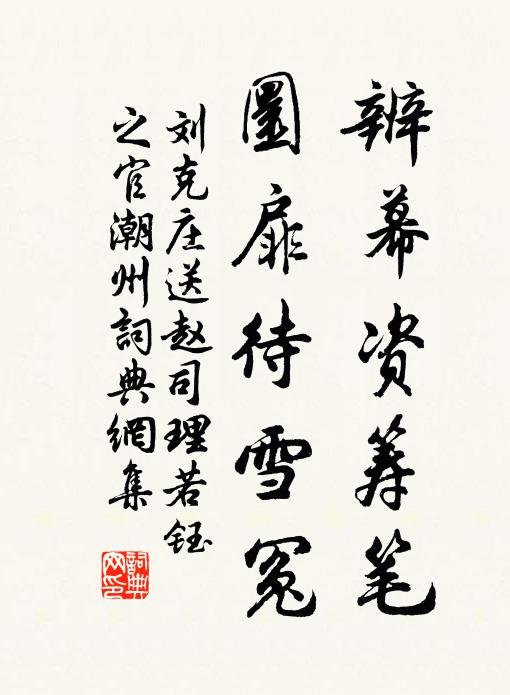 辨幕资筹笔
圜扉待雪冤
刘克庄送赵司理若钰
之官潮州詞典網集
詞典网印